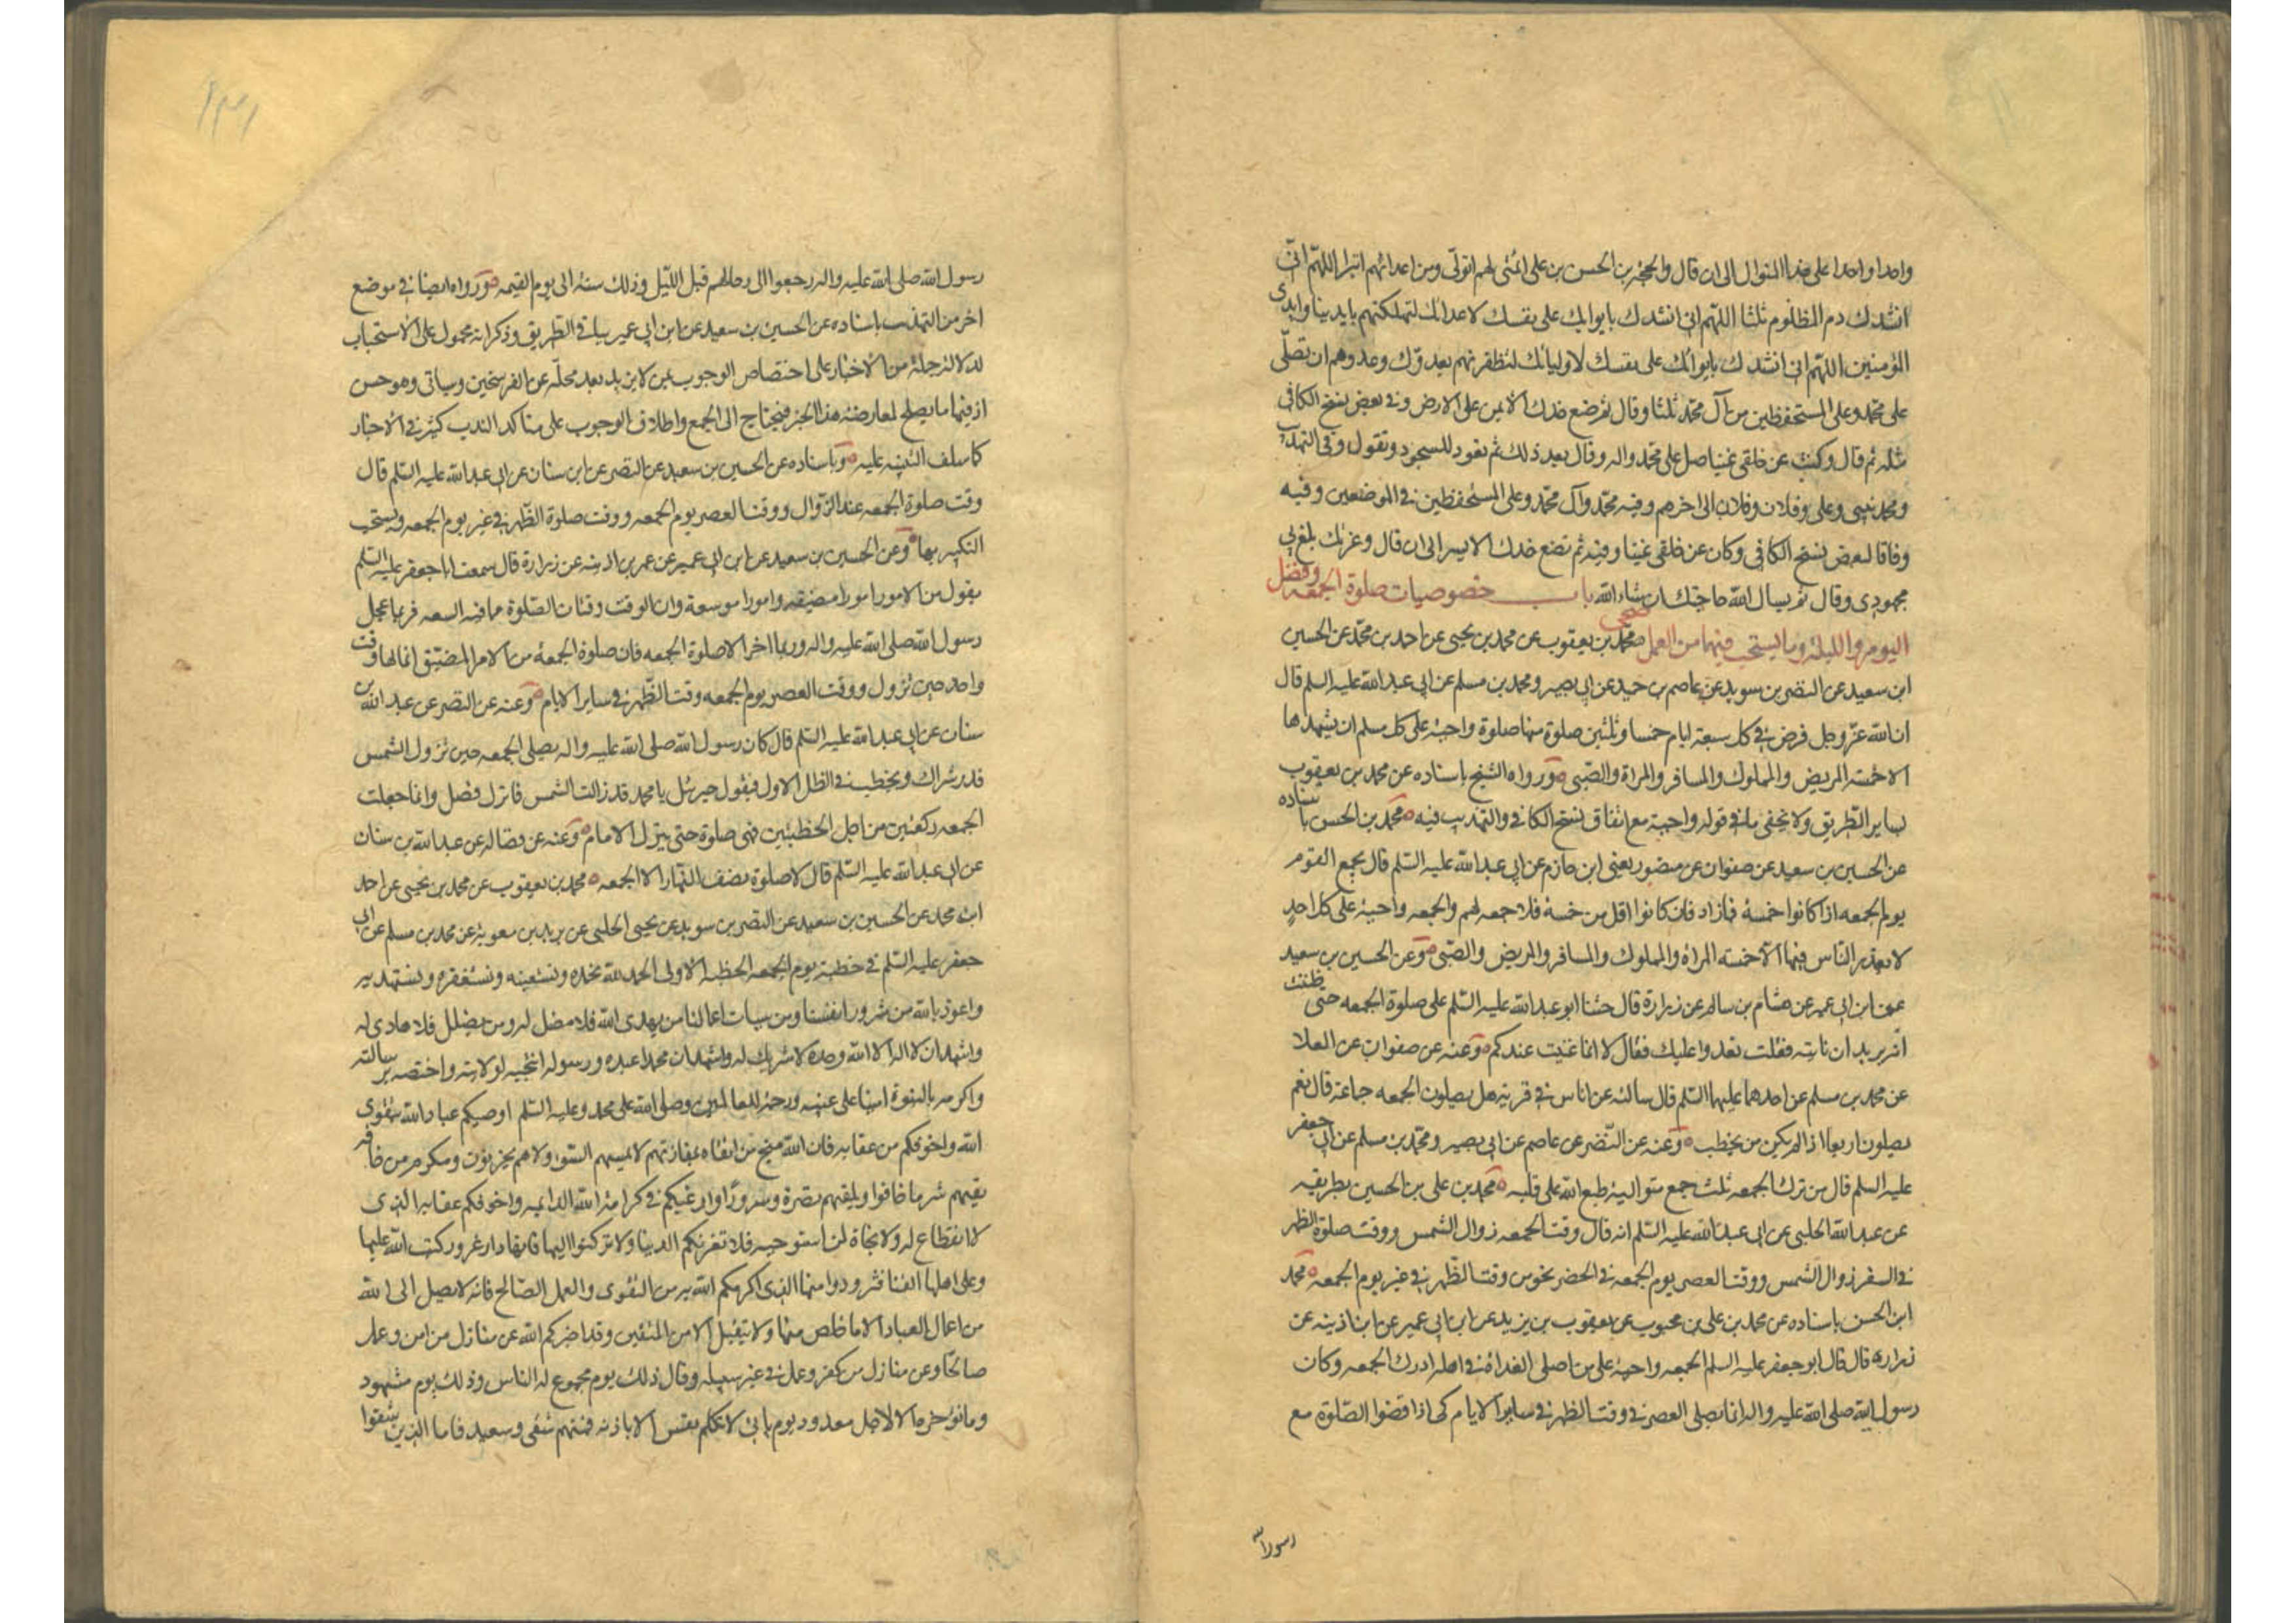 واحدا واحدا على هذا المنوال الى ان قال والحجة بن الحسن بن على ائمتى بهم اتولى ومن اعدائهم اتبرا اللهم انى
انشدك دم المظلوم ثلثا اللهم انى انشدك بايوائك على نفسك لاعدائك لتهلكنهم بايدينا وايدى
المؤمنين اللهم انى انشدك بايوائك على نفسك لاوليائك لتظفرنهم بعدوك وعدوهم ان تصلى
على محمد وعلى المستحفظين من آل محمد ثلثا وقال ثم تضع خدك الايمن على الارض وفى بعض نسخ الكافى
مثله ثم قال وكنت عن خلقى غنيا صل على محمد واله وقال بعد ذلك ثم تعود للسجود وتقول وفى التهذيب
ومحمد نبيى وعلى وفلان وفلان الى اخرهم وفيه محمد وآل محمد وعلى المستحفظين فى الموضعين وفيه
وفاقا لبعض نسخ الكافى وكان عن خلقى غنيا وفيه ثم تضع خدك الايسر الى ان قال وعزتك بلغ بى
مجهودى وقال ثم يسال الله حاجتك ان شاء الله باب خصوصيات صلوة الجمعه وفضل
اليوم والليلة وما يستحب فيهما من العمل صحى محمد بن يعقوب عن محمد بن يحيى عن احمد بن محمد عن الحسين
ابن سعيد عن النضر بن سويد عن عاصم بن حميد عن ابى بصير ومحمد بن مسلم عن ابى عبد الله عليه السلم قال
ان الله عز وجل فرض فى كل سبعة ايام خمسا وثلثين صلوة منها صلوة واجبة على كل مسلم ان يشهدها
الا خمسة المريض والمملوك والمسافر والمراة والصبى ورواه الشيخ باسناده عن محمد بن يعقوب
بساير الطريق ولا يخفى ما فى قوله واجبة مع اتفاق نسخ الكافى والتهذيب فيه محمد بن الحسن باسناده
عن الحسين بن سعيد عن صفوان عن منصور يعنى ابن حازم عن ابى عبد الله عليه السلم قال يجمع القوم
يوم الجمعه اذا كانوا خمسة فما زاد فان كانوا اقل من خمسة فلا جمعه لهم والجمعه واجبة على كل احد
لا يعذر الناس فيها الا خمسة المراة والمملوك والمسافر والمريض والصبى وعن الحسين بن سعيد
عن ابن ابى عمير عن هشام بن سالم عن زرارة قال حثنا ابو عبد الله عليه السلم على صلوة الجمعه حتى ظننت
انه يريد ان ناتيه فقلت نغدوا عليك فقال لا انما عنيت عندكم وعنه عن صفوان عن العلا
عن محمد بن مسلم عن احدهما عليهما السلم قال سالته عن اناس فى قرية هل يصلون الجمعه جماعة قال نعم
يصلون اربعا اذا لم يكن من يخطب وعنه عن النضر عن عاصم عن ابى بصير ومحمد بن مسلم عن ابى جعفر
عليه السلم قال من ترك الجمعه ثلث جمع متوالية طبع الله على قلبه محمد بن على بن الحسين بطريقه
عن عبد الله الحلبى عن ابى عبد الله عليه السلم انه قال وقت الجمعه زوال الشمس ووقت صلوة الظهر
فى السفر زوال الشمس ووقت العصر يوم الجمعه فى الحضر نحو من وقت الظهر فى غير يوم الجمعه محمد
ابن الحسن باسناده عن محمد بن على بن محبوب عن يعقوب بن يزيد عن ابن ابى عمير عن ابن اذينه عن
زراره قال قال ابو جعفر عليه السلم الجمعه واجبة على من اصلى الغداة فى اهله ادرك الجمعه وكان
رسول الله صلى الله عليه واله انما يصلى العصر فى وقت الظهر فى ساير الايام كى اذا قضوا الصلوة مع
رسول الله
١٣١
رسول الله صلى الله عليه واله رجعوا الى رحالهم قبل الليل وذلك سنة الى يوم القيمه ورواه ايضا فى موضع
اخر من التهذيب باسناده عن الحسين بن سعيد عن ابن ابى عمير بباقى الطريق وذكر انه محمول على الاستحباب
لدلالة جملة من الاخبار على اختصاص الوجوب بمن لا يزيد بعد محله عن الفرسخين وسياتى وهو حسن
اذ فيها ما يصلح لمعارضة هذا الخبر فيحتاج الى الجمع واطلاق الوجوب على متاكد الندب كثير فى الاخبار
كما سلف التنبيه عليه وباسناده عن الحسين بن سعيد عن النضر عن ابن سنان عن ابى عبد الله عليه السلم قال
وقت صلوة الجمعه عند الزوال ووقت العصر يوم الجمعه ووقت صلوة الظهر فى غير يوم الجمعه ويستحب
التكبير بها وعن الحسين بن سعيد عن ابن ابى عمير عن عمر بن اذينه عن زرارة قال سمعت ابا جعفر عليه السلم
يقول من الامور امورا مضيقه وامورا موسعة وان الوقت وقتان الصلوة مما فيه السعه فربما عجل
رسول الله صلى الله عليه واله وربما اخر الا صلوة الجمعه فان صلوة الجمعة من الامر المضيق انما لها وقت
واحد حين تزول ووقت العصر يوم الجمعه وقت الظهر فى ساير الايام وعنه عن النضر عن عبد الله بن
سنان عن ابى عبد الله عليه السلم قال كان رسول الله صلى الله عليه واله يصلى الجمعه حين تزول الشمس
قدر شراك ويخطب فى الظل الاول فيقول جبرئيل يا محمد قد زالت الشمس فانزل فصل وانما جعلت
الجمعه ركعتين من اجل الخطبتين فهى صلوة حتى ينزل الامام وعنه عن فضاله عن عبد الله بن سنان
عن ابى عبد الله عليه السلم قال لا صلوة نصف النهار الا الجمعه محمد بن يعقوب عن محمد بن يحيى عن احمد
ابن محمد عن الحسين بن سعيد عن النضر بن سويد عن يحيى الحلبى عن بريد بن معوية عن محمد بن مسلم عن ابى
جعفر عليه السلم فى خطبة يوم الجمعه الخطبه الاولى الحمد لله نحمده ونستعينه ونستغفره ونستهديه
واعوذ بالله من شرور انفسنا ومن سيات اعمالنا من يهدى الله فلا مضل له ومن يضلل فلا هادى له
واشهد ان لا اله الا الله وحده لا شريك له واشهد ان محمدا عبده ورسوله انتجبه لولايته واختصه برسالته
واكرمه بالنبوة امينا على غيبه ورحمة للعالمين وصلى الله على محمد وعليه السلم اوصيكم عباد الله بتقوى
الله واخوفكم من عقابه فان الله منجى من اتقاه بمفازتهم لا يمسهم السوء ولا هم يحزنون ومكرم من خافه
يقيهم شر ما خافوا ويلقيهم نضرة وسرورا وارغبكم فى كرامة الله الدايمه واخوفكم عقابه الذى
لا انقطاع له ولا نجاة لمن استوجبه فلا تغرنكم الدنيا ولا تركنوا اليها فانها دار غرور كتب الله عليها
وعلى اهلها الفنا فتزودوا منها الذى اكرمكم الله به من التقوى والعمل الصالح فانه لا يصل الى الله
من اعمال العباد الا ما خلص منها ولا يتقبل الا من المتقين وقد اخبركم الله عن منازل من امن وعمل
صالحا وعن منازل من كفر وعمل فى غير سبيله وقال ذلك يوم مجموع له الناس وذلك يوم مشهود
وما نؤخره الا لاجل معدود يوم ياتى لا تكلم نفس الا باذنه فمنهم شقى وسعيد فاما الذين شقوا